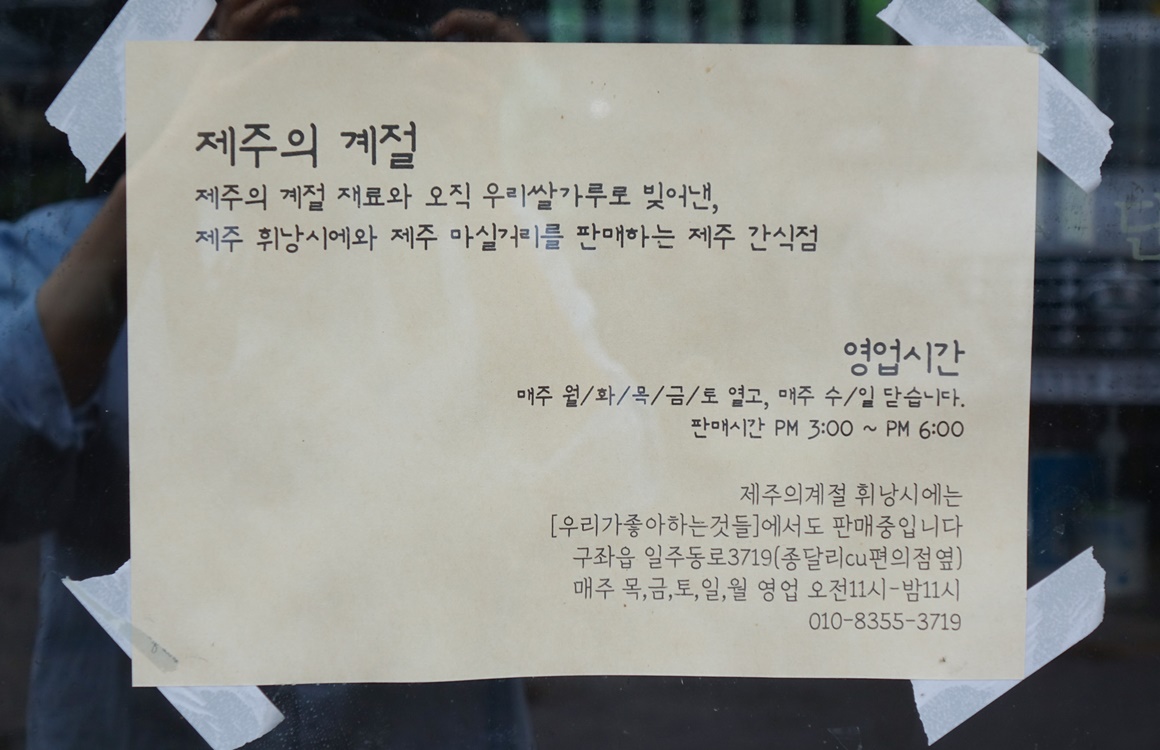 제주의 계절
제주의 계절 재료와 오직 우리쌀가루로 빚어낸,
제주 휘낭시에와 제주 마실거리를 판매하는 제주 간식점
영업시간
매주 월/화/목/금/토 열고, 매주 수/일 닫습니다.
판매시간 PM 3:00 ~ PM 6:00
제주의계절 휘낭시에는
[우리가좋아하는것들]에서도 판매중입니다
구좌읍 일주동로3719(종달리cu편의점옆)
매주 목,금,토,일,월 영업 오전11시-밤11시
010-8355-3719